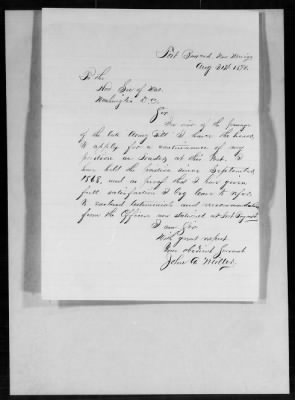 Fort Bayard, New Mexico
Aug 21st 1870.
To the
Hon Sec of War.
Washington D.C.
Sir
In view of the passage
of the late Army Bill I have the honor
to apply for a continuance of my
position as trader at this Post. I
have held the position since September
1868, and as proof that I have given
full satisfaction I beg leave to refer
to enclosed testimonials and recommendations
from the Officers now stationed at Fort Bayard.
I am Sir
With great respect
Your obedient Servant
John A Miller.